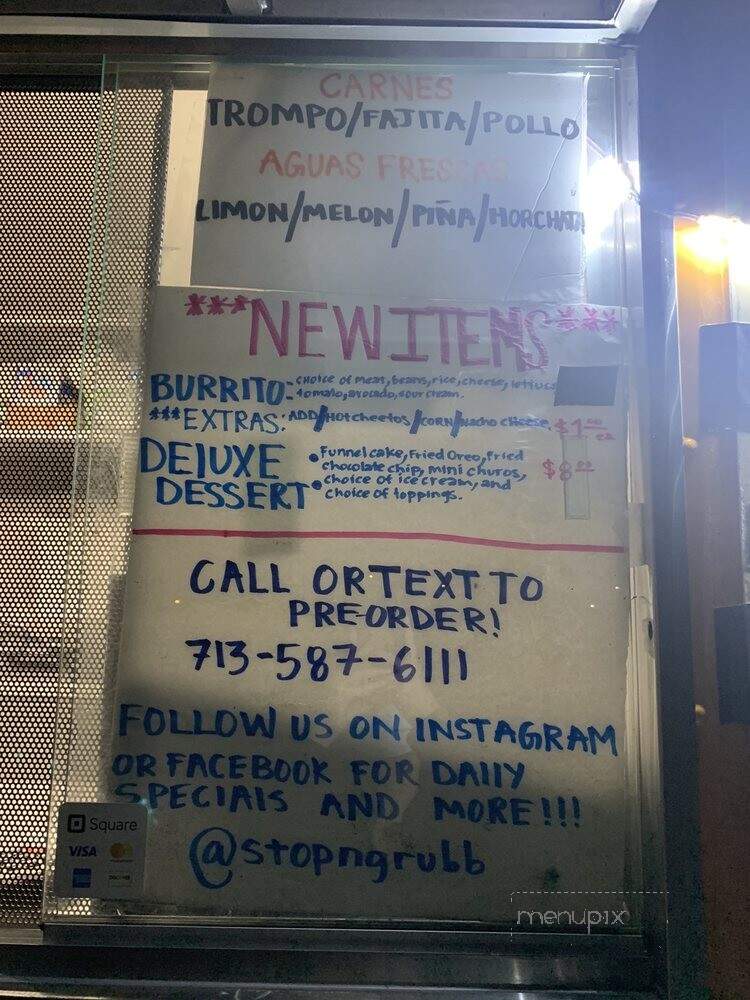 CARNES
TROMPO/FAJITA/POLLO
AGUAS FRESCAS
LIMON/MELON/PIÑA/HORCHATA
***NEW ITEMS***
BURRITO:- choice of meat, beans, rice, cheese, lettuce
tomato, avocado, sour cream.
***EXTRAS: ADD/Hot cheetos/CORN/Nacho cheese, $1.00 ea
DElUXE DESSERT
• Funnel cake, Fried Oreo, fried
chocolate chip, mini churos,
• choice of ice cream, and
choice of toppings.
$8.00
CALL OR TEXT TO
PRE-ORDER!
713-587-6111
FOLLOW US ON INSTAGRAM
OR FACEBOOK FOR DAIlY
SPECIAlS AND MORE!!!
@stopngrubb
Square
VISA
DISCOVER
menupix